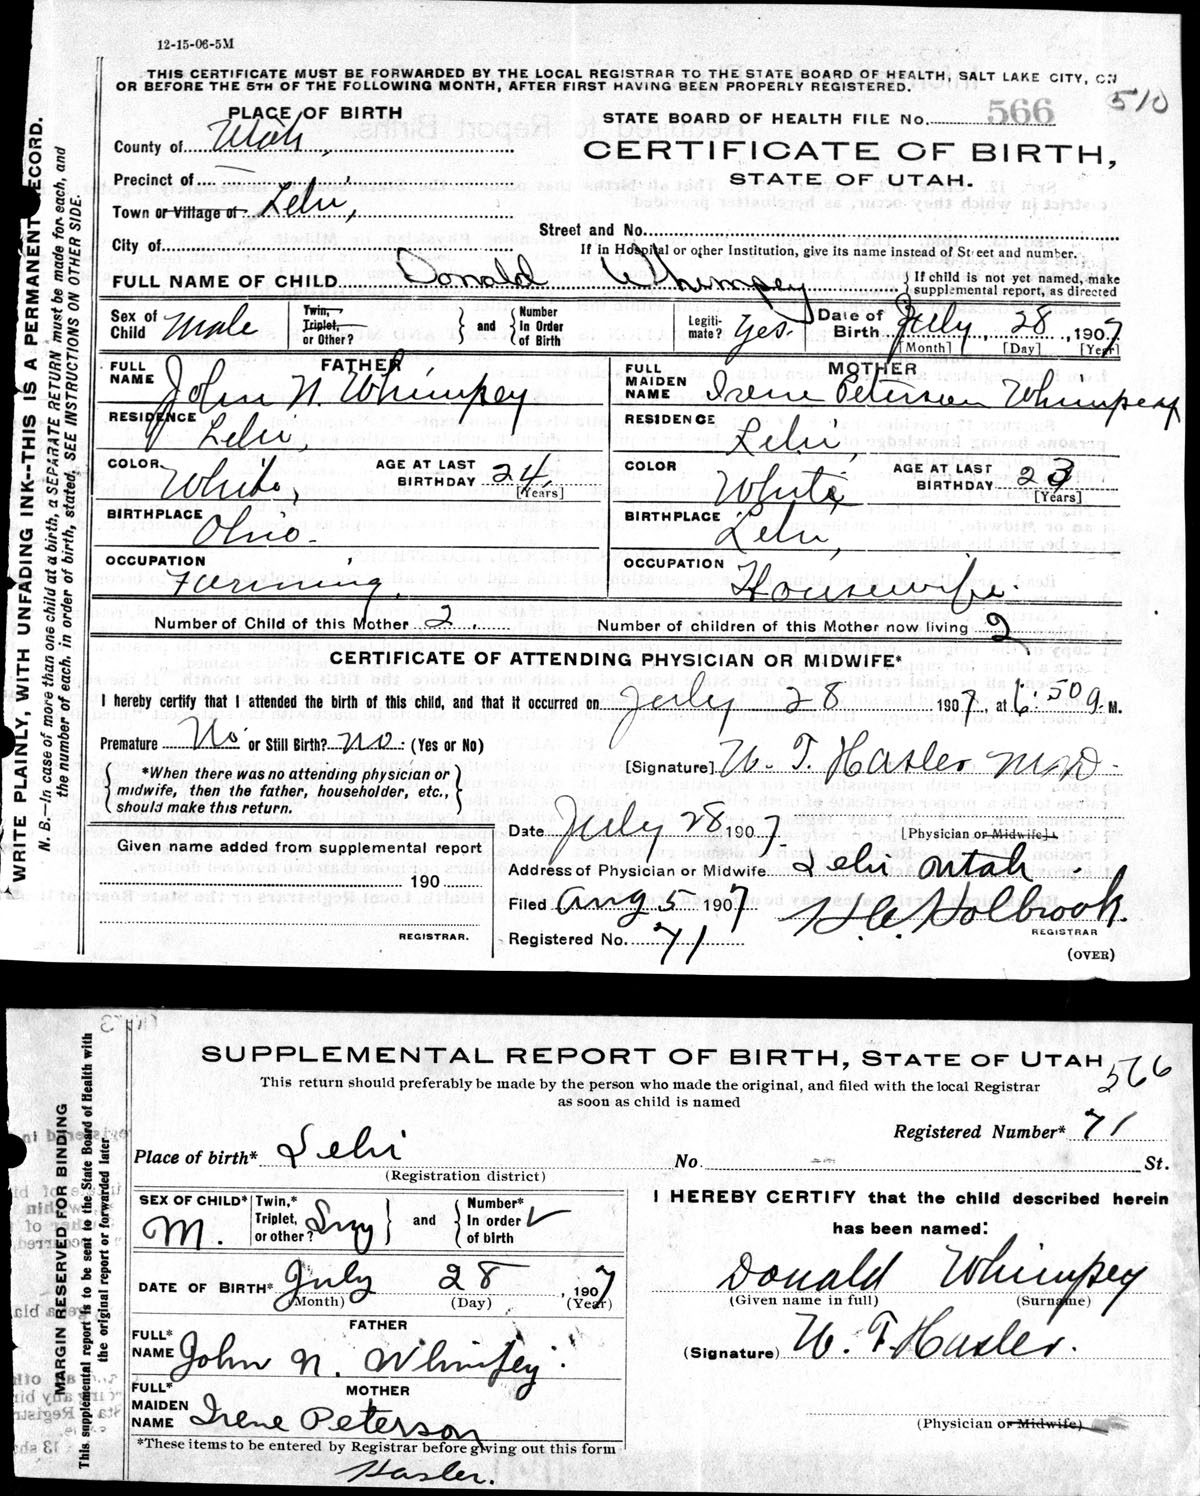 12-15-06-5M
THIS CERTIFICATE MUST BE FORWARDED BY THE LOCAL REGISTRAR TO THE STATE BOARD OF HEALTH, SALT LAKE CITY, ON
OR BEFORE THE 5TH OF THE FOLLOWING MONTH, AFTER FIRST HAVING BEEN PROPERLY REGISTERED.
510
PLACE OF BIRTH
STATE BOARD OF HEALTH FILE No. 566
County of Utah,
CERTIFICATE OF BIRTH,
STATE OF UTAH.
Precinct of
Town or Village of Lehi,
Street and No.
City of
If in Hospital or other Institution, give its name instead of Street and number.
FULL NAME OF CHILD Donald Whimpey { If child is not yet named, make supplemental report, as directed
Sex of Child Male Twin, Triplet, or Other? } and { Number In Order of Birth Legiti-mate? Yes. Date of Birth July 28, 1907
[Month] [Day] [Year]
FATHER
FULL NAME John N. Whimpey
RESIDENCE Lehi,
COLOR White, AGE AT LAST BIRTHDAY 24 [Years]
BIRTHPLACE Ohio.
OCCUPATION Farming.
MOTHER
FULL MAIDEN NAME Irene Peterson Whimpey
RESIDENCE Lehi,
COLOR White AGE AT LAST BIRTHDAY 23 [Years]
BIRTHPLACE Lehi,
OCCUPATION Housewife.
Number of Child of this Mother 2. Number of children of this Mother now living 2
CERTIFICATE OF ATTENDING PHYSICIAN OR MIDWIFE*
I hereby certify that I attended the birth of this child, and that it occurred on July 28 1907, at 6:50 a. M.
Premature No or Still Birth? no. (Yes or No)
[Signature] W. T. Hasler M.D.
{ *When there was no attending physician or midwife, then the father, householder, etc., should make this return. }
Date July 28 1907. [Physician or Midwife].
Given name added from supplemental report
190
REGISTRAR.
Address of Physician or Midwife Lehi Utah
Filed Aug 5 1907 Holbrook.
REGISTRAR
Registered No. 71
(OVER)
WRITE PLAINLY, WITH UNFADING INK--THIS IS A PERMANENT RECORD.
N. B.—In case of more than one child at a birth, a SEPARATE RETURN must be made for each, and
the number of each, in order of birth, stated. SEE INSTRUCTIONS ON OTHER SIDE.
SUPPLEMENTAL REPORT OF BIRTH, STATE OF UTAH
566
This return should preferably be made by the person who made the original, and filed with the local Registrar
as soon as child is named
Registered Number* 71
Place of birth* Lehi No. St.
(Registration district)
SEX OF CHILD* M. Twin,* Triplet, or other? } and { Number* In order of birth
DATE OF BIRTH* July 28, 1907
(Month) (Day) (Year)
FATHER
FULL* NAME John N. Whimpey.
MOTHER
FULL* MAIDEN NAME Irene Peterson
*These items to be entered by Registrar before giving out this form
Hasler.
I HEREBY CERTIFY that the child described herein
has been named:
Donald Whimpey
(Given name in full) (Surname)
(Signature) W. T. Hasler.
(Physician or Midwife)
MARGIN RESERVED FOR BINDING
This supplemental report is to be sent to the State Board of Health with
the original report or forwarded later